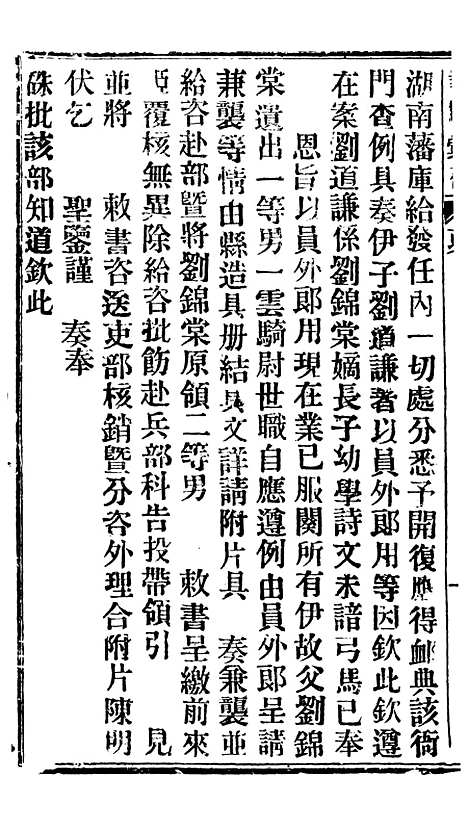 湖南藩庫給發任內一切處分悉予開復應得卹典該衙
門查例具奏伊子劉道謙著以員外郎用等因欽此欽遵
在案劉道謙係劉錦棠嫡長子幼學詩文未諳弓馬已奉
恩旨以員外郎用現在業已服闋所有伊故父劉錦
棠遺出一等男一雲騎尉世職自應遵例由員外郎呈請
兼襲等情由縣造具册結具文詳請附片具　奏兼襲並
給咨赴部暨將劉錦棠原領二等男　敕書呈繳前來
臣覆核無異除給咨批飭赴兵部科告投帶領引　見
並將　敕書咨送吏部核銷暨分咨外理合附片陳明
伏乞　聖鑒謹　奏奉
硃批該部知道欽此